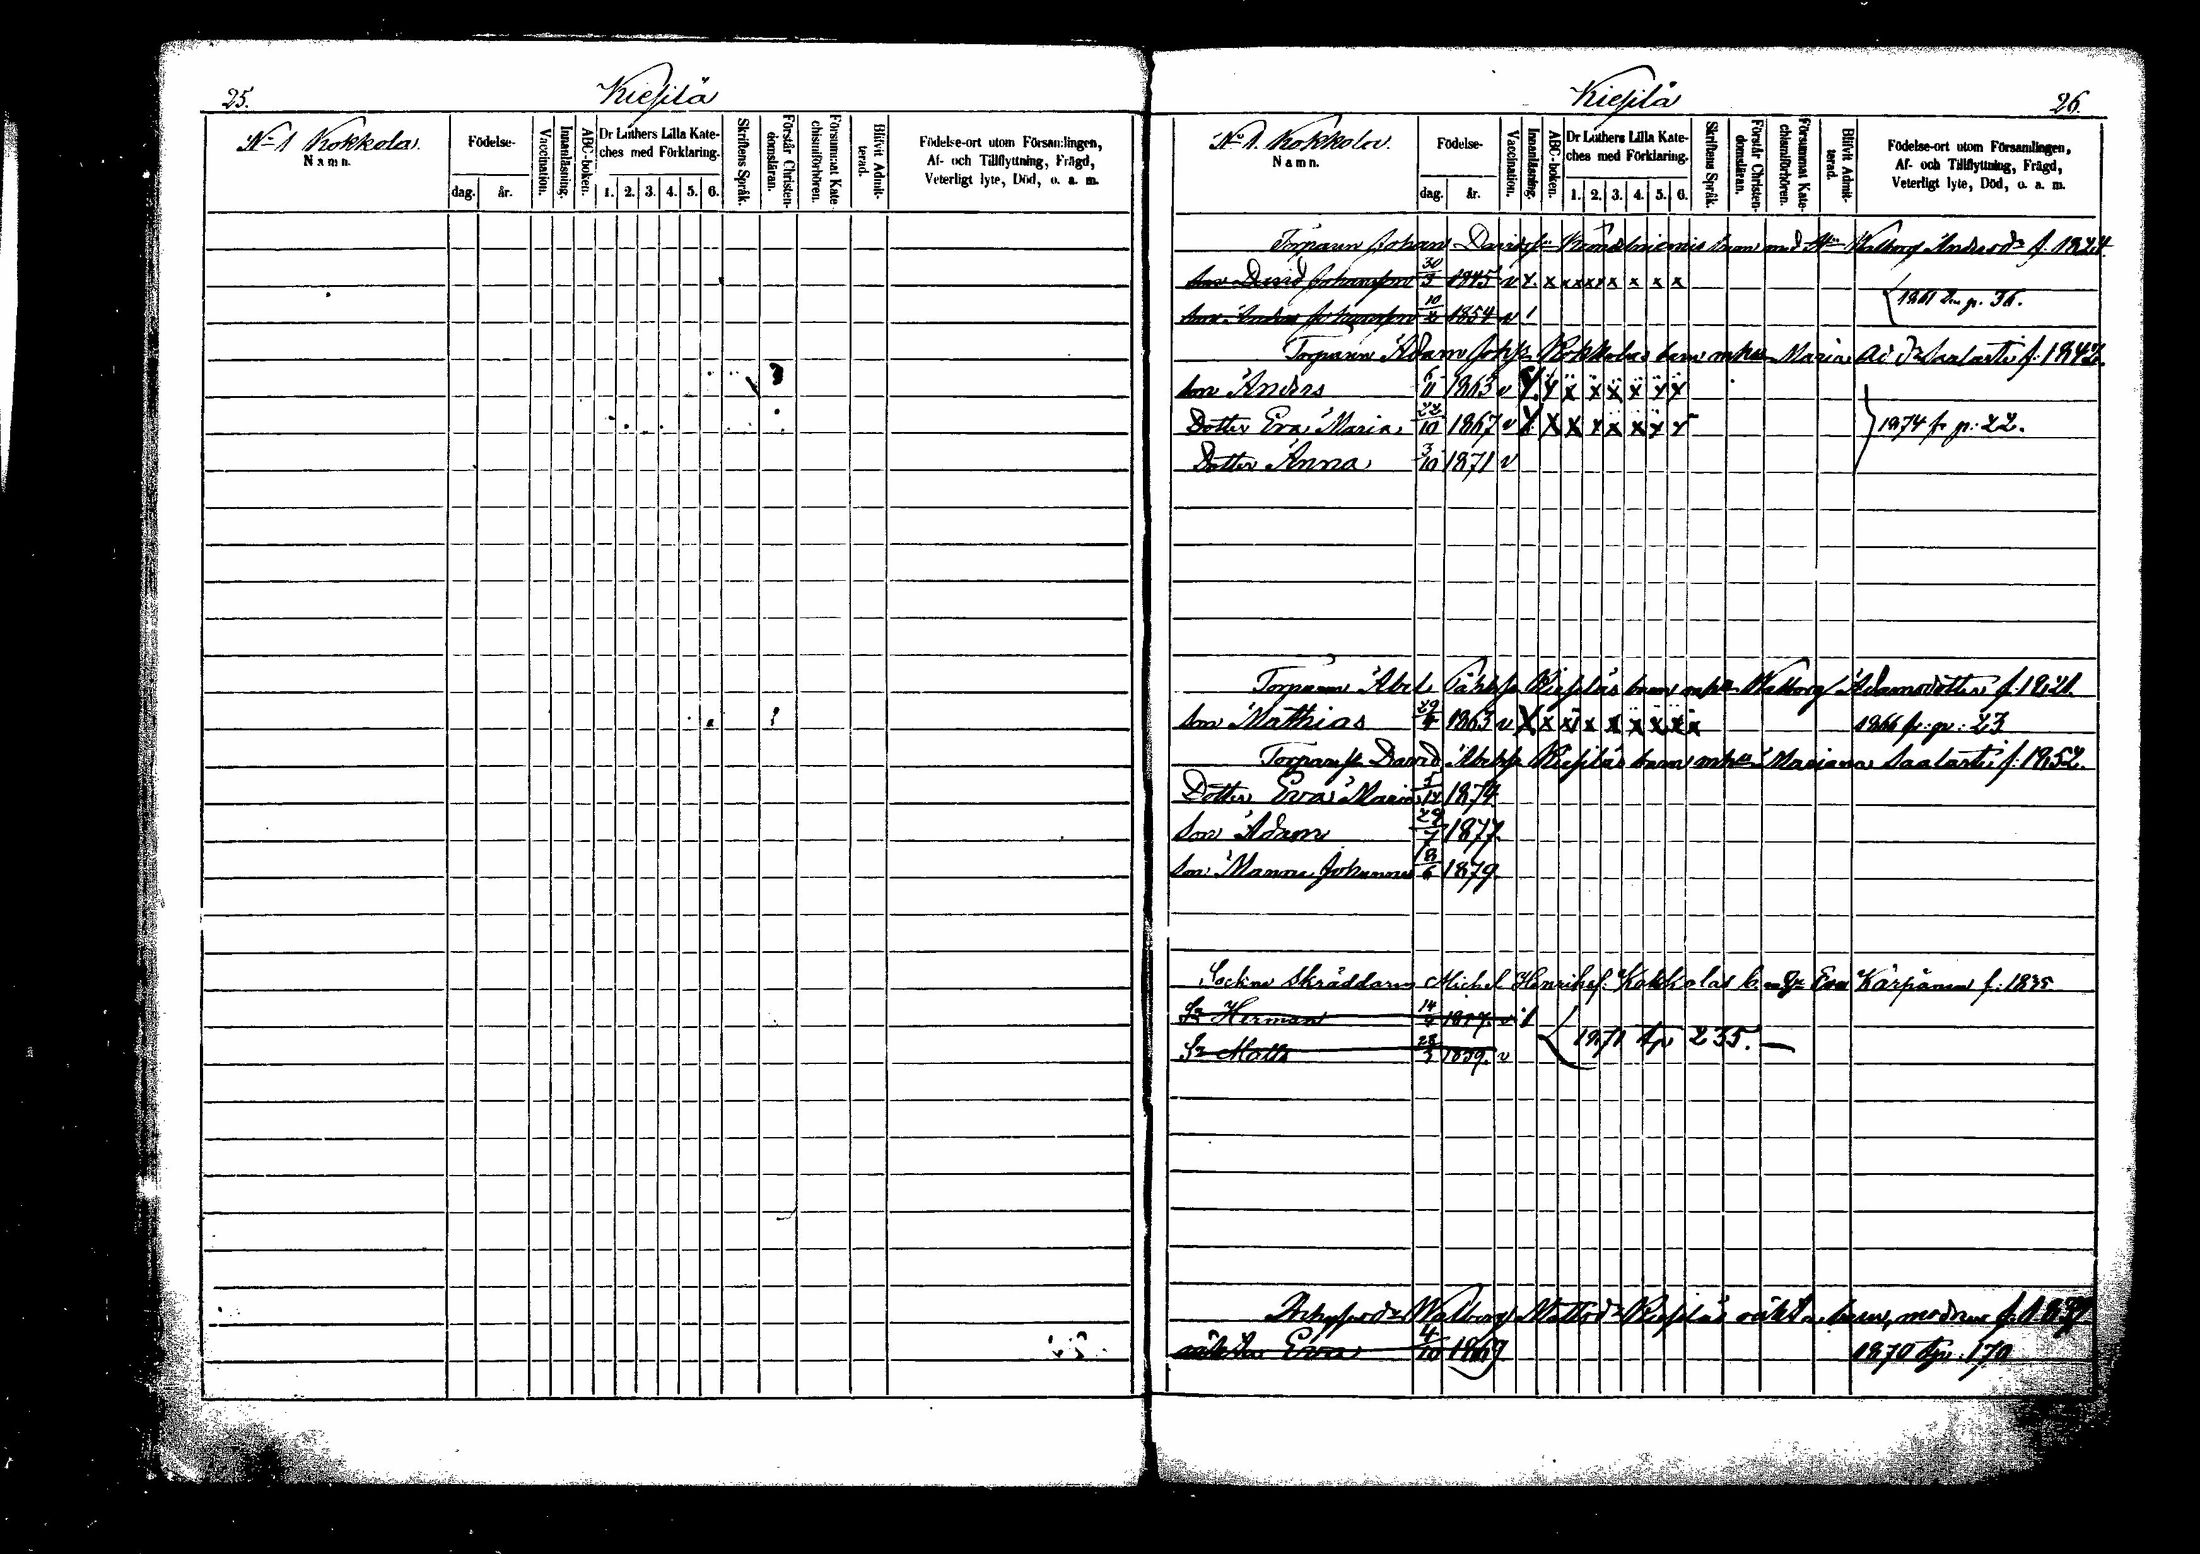 25.
Kiesilä
No 1 Kokkola.
Namn.
Födelse-
dag. år.
Vaccination.
Innanläsning.
ABC-boken.
Dr Luthers Lilla Kate-
ches med Förklaring.
1. 2. 3. 4. 5. 6.
Skriftens Språk.
Förstår Christen-
domsläran.
Försummat Kate-
chismiförhören.
Blifvit Admit-
terad.
Födelse-ort utom Församlingen,
Af- och Tillflyttning, Frägd,
Veterligt lyte, Död, o. a. m.
Kiesilä
26.
No 1. Kokkola.
Namn.
Födelse-
dag. år.
Vaccination.
Innanläsning.
ABC-boken.
Dr Luthers Lilla Kate-
ches med Förklaring.
1. 2. 3. 4. 5. 6.
Skriftens Språk.
Förstår Christen-
domsläran.
Försummat Kate-
chismiförhören.
Blifvit Admit-
terad.
Födelse-ort utom Församlingen,
Af- och Tillflyttning, Frägd,
Veterligt lyte, Död, o. a. m.
Torparen Johan Davidss. barn med Walborg Andersdr f. 1824.
son David Johansson 30/3 1845 v x x x x x x x x x
son Johansson 10/2 1854 v
1861 p. 36.
Torparen Adam Johss. Kokkolas barn m hu Maria Ad dr Saalasti f. 1842.
son Anders 6/11 1863 v x x x x x x x x
Dotter Eva Maria 22/10 1867 v x x x x x x x x
1874 fr p: 22.
Dotter Anna 3/10 1871 v
Torparen Abel Kiesiläs barn m hu Walborg Adamsdotter f. 1821
son Mathias 29/4 1863 v x x x x x x x x x
1866 fr: p: 23
Torparess David Abelss. Kiesiläs barn m hu Mariana Saalasti f: 1852.
Dotter Eva Maria 5/12 1874
son Adam 29/7 1877.
son Manne Johannes 18/6 1879.
Sockne skräddaren Michel Henrikss. Kokkolas b. m Eva Kärpänen f: 1835
Sn Herman 14/4 1857. v
1871 tp 235.
Sn Matts 28/3 1859. v
Walborg Mattsdr Kiesiläs oäkta barn, modren f. 1837
oäkta Eva 4/10 1869
1870 tp: 170